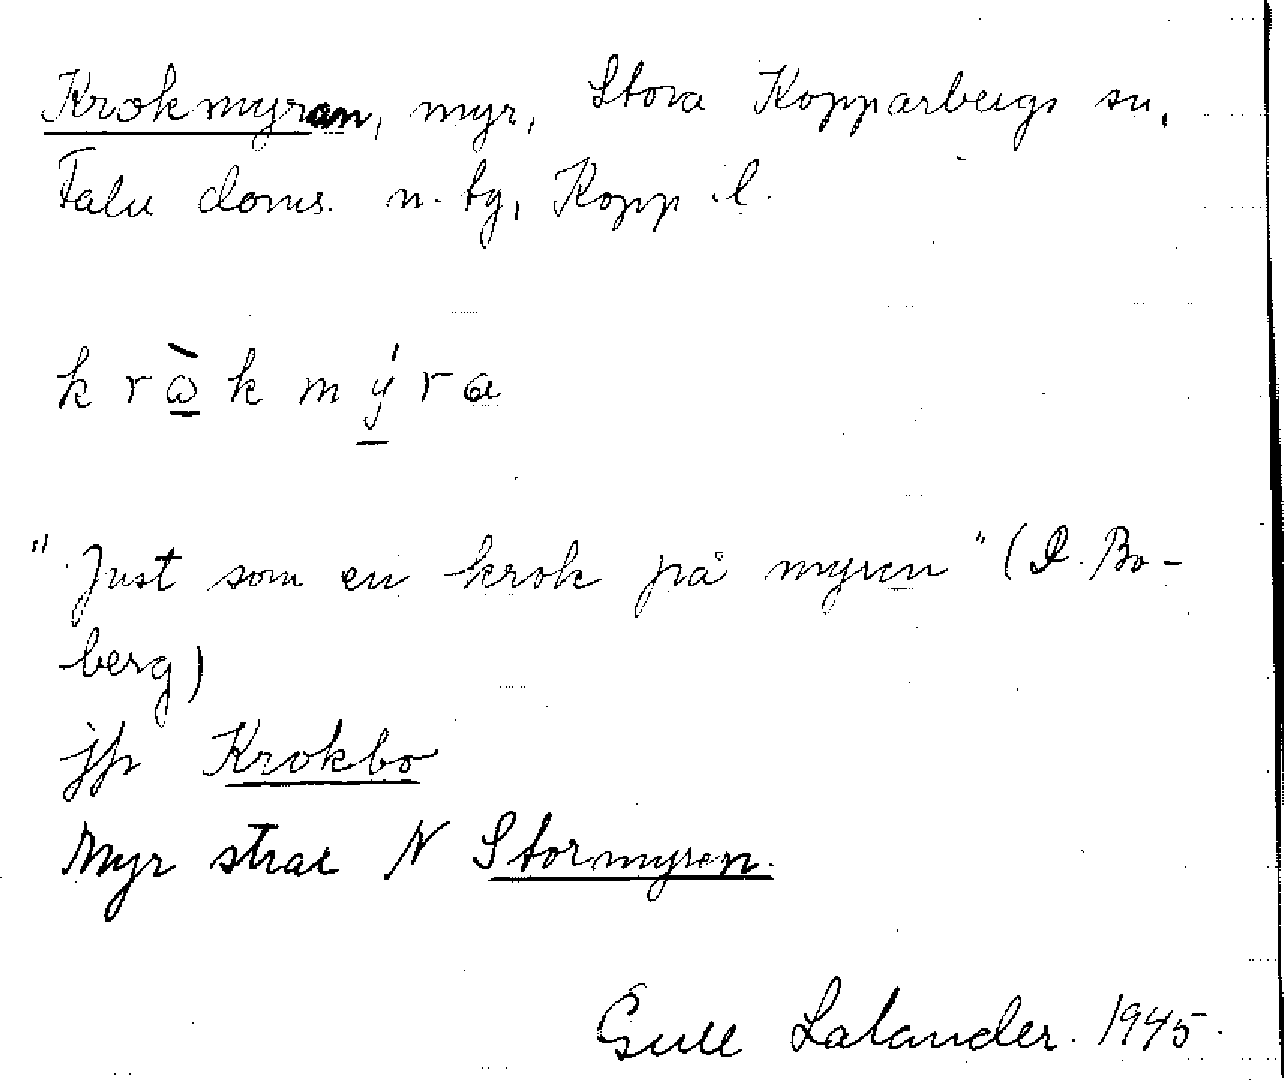 Krokmyran, myr, Stora Kopparbergs sn,
Falu doms. n. tg, Kopp. l.
k r ὼ k m ý r a
"Just som en krok på myren" (P. Bo-
berg)
jfr Krokbo
Myr strax N Stormyren.
Gull Lalander. 1945.